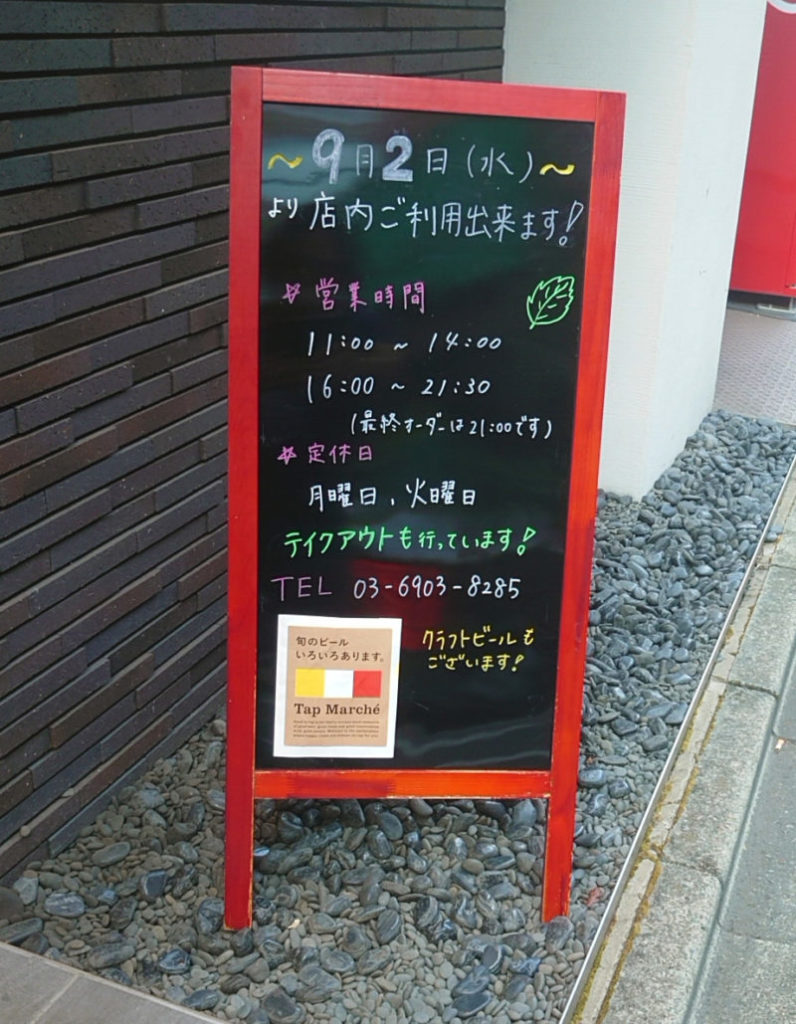 ～9月2日(水)～
より店内ご利用出来ます!
営業時間
11:00 ～ 14:00
16:00 ～ 21:30
(最終オーダーは21:00です)
定休日
月曜日、火曜日
テイクアウトも行っています!
TEL 03-6903-8285
旬のビール
いろいろあります。
Tap Marché
クラフトビールも
ございます!